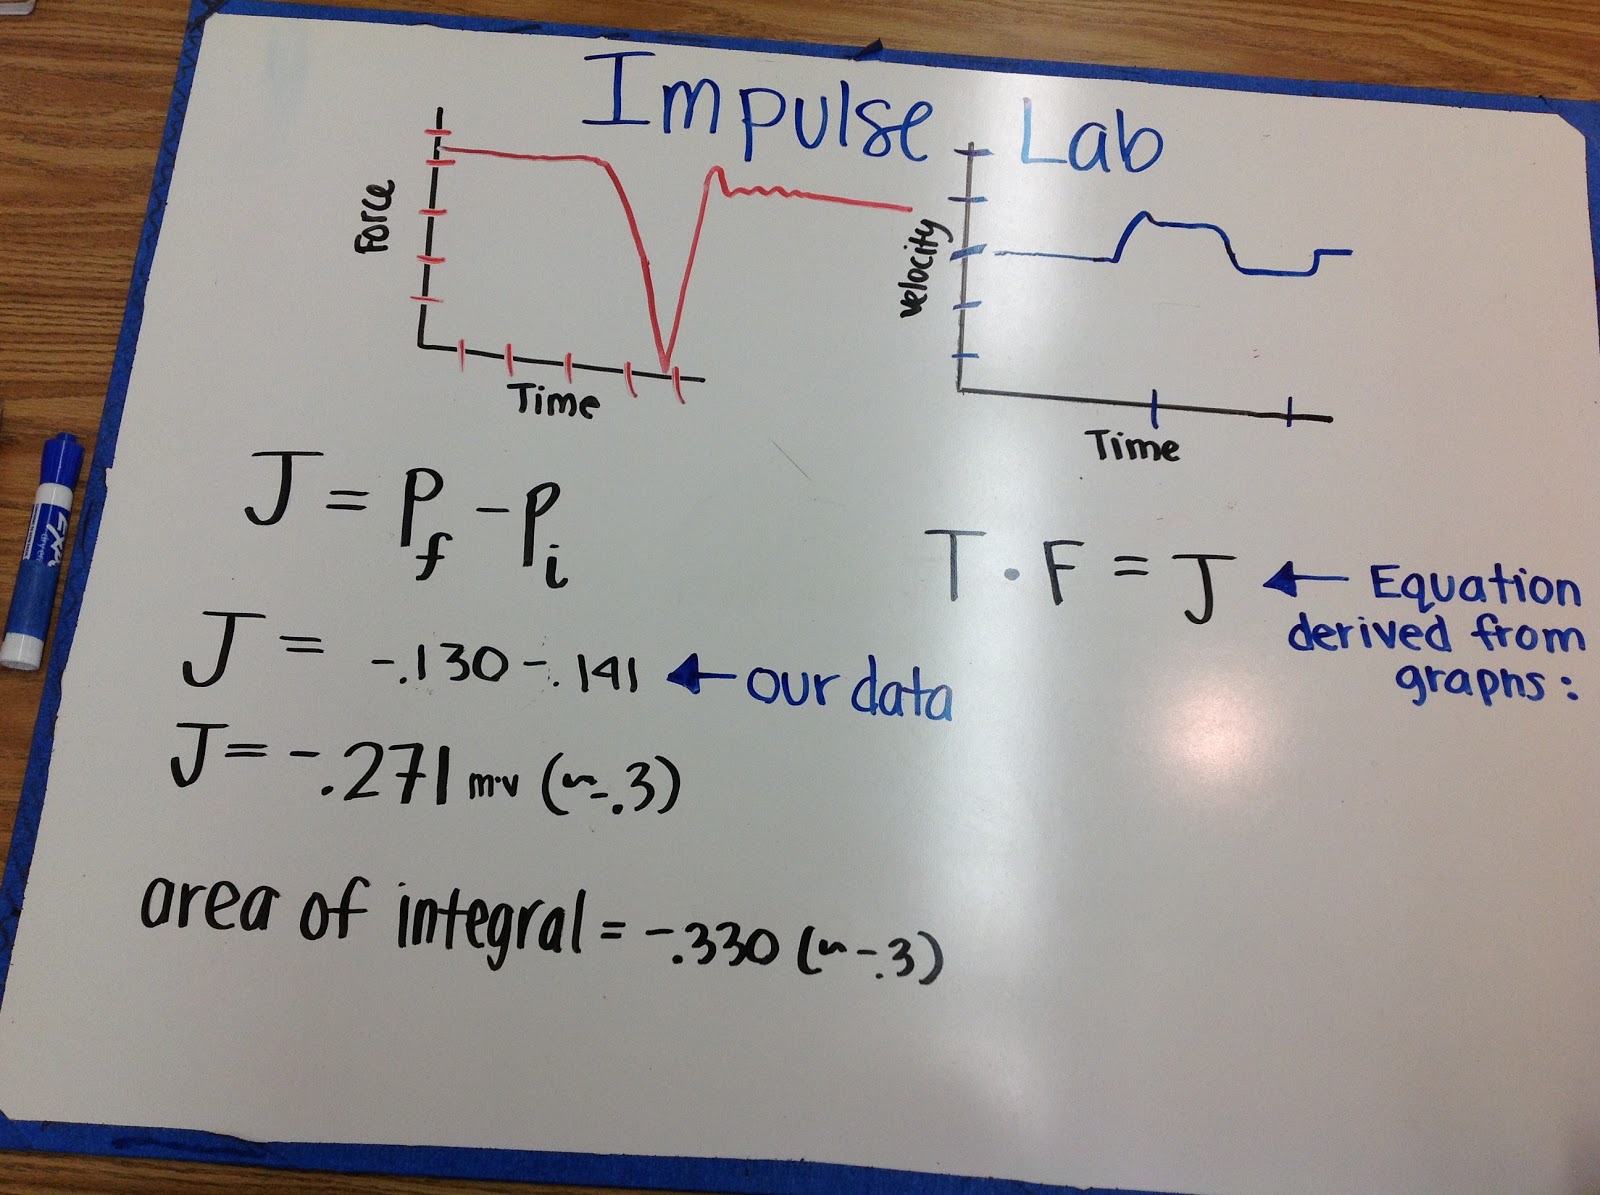 Impulse Lab
Force
Time
velocity
Time
J = Pf - Pi
J = -.130 - .141 ← our data
J = -.271 m·v (~-.3)
area of integral = -.330 (~ -.3)
T · F = J ← Equation
derived from
graphs:
EXPO